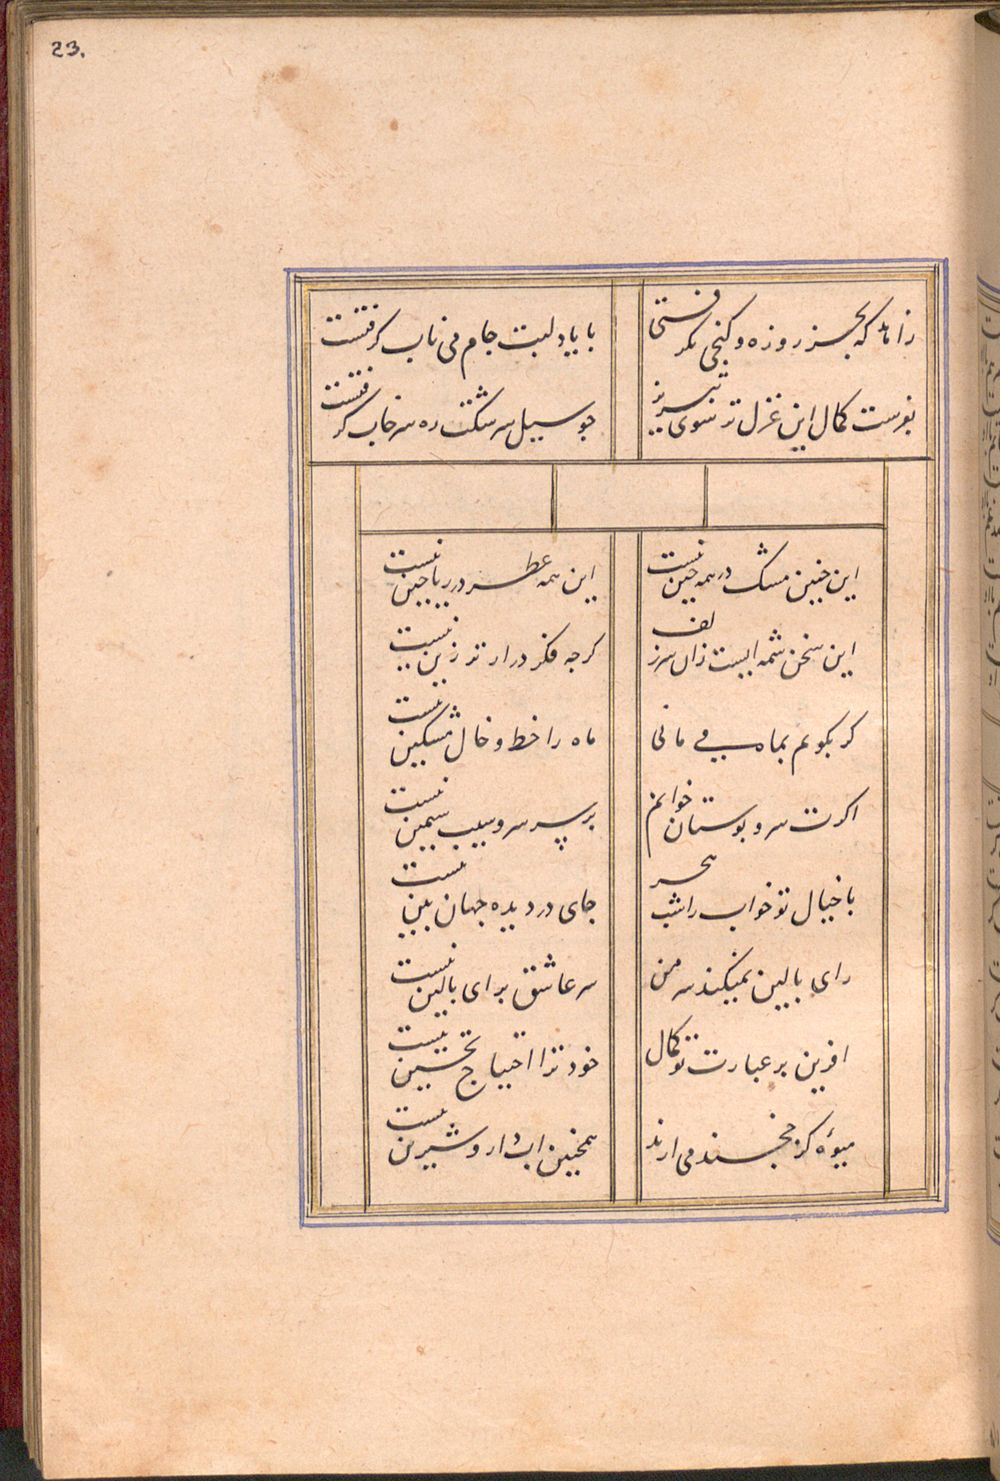 23.
زاهد که بجز روزه و کنجی نگرفتی
با یاد لبت جام می ناب گرفتست
بفرست کمال این غزل تر سوی تبریز
چو سیل سرشکت ره سرخاب گرفتست
این چنین مشک در همه چین نیست
این همه عطر در ریاحین نیست
این سخن شمه ایست زان سر زلف
کرچه فکر دراز تر زین نیست
کر بکویم بماه می مانی
ماه را خط و خال مشکین نیست
اکرت سرو بوستان خوانم
بر سر سرو سیب سیمین نیست
با خیال تو خواب را شب هجر
جای در دیده جهان بین نیست
رای بالین نمیکند سر من
سر عاشق برای بالین نیست
افرین بر عبارت تو کمال
خود ترا احتیاج تحسین نیست
میوهٔ کز خجند می ارند
همچنین ابدار و شیرین نیست